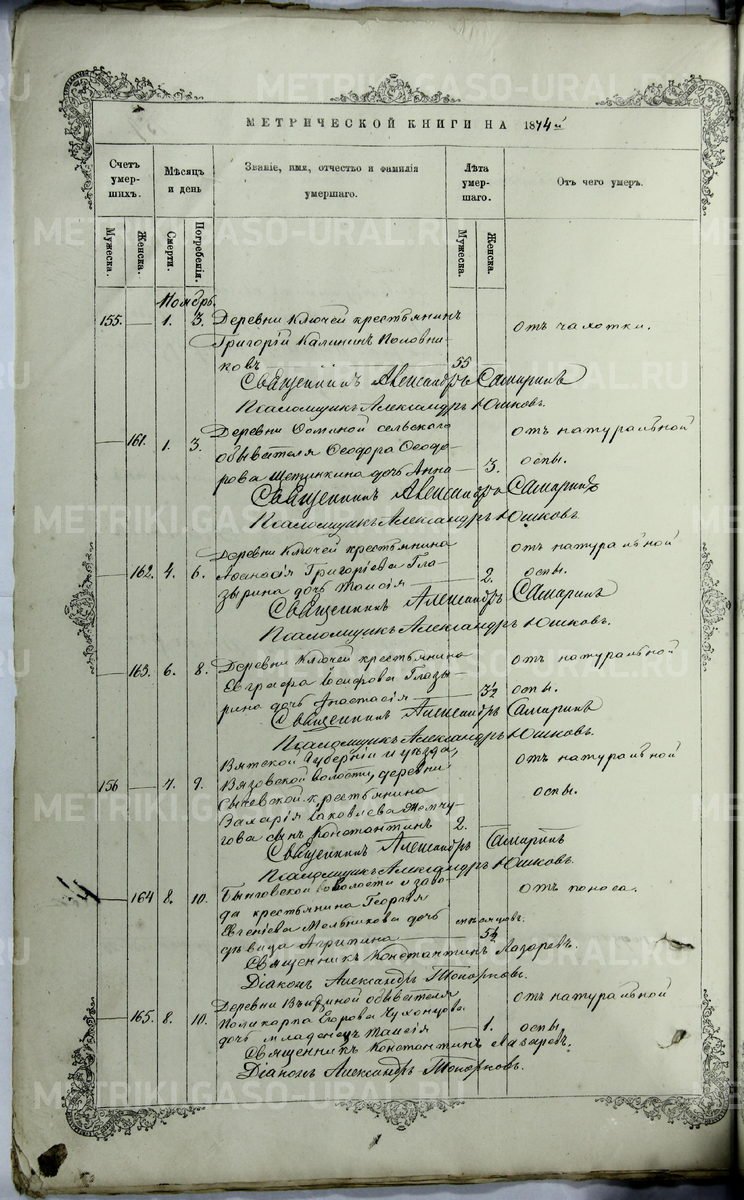 МЕТРИЧЕСКОЙ КНИГИ НА 1874й
Счетъ умершихъ.
Мѣсяцъ и день
Званіе, имя, отчество и фамилія умершаго.
Лѣта умершаго.
Отъ чего умеръ.
Мужеска.
Женска.
Смерти.
Погребенія.
Мужеска.
Женска.
Ноябрь.
155. 1. 3. Деревни Ключей крестьянинъ отъ чахотки.
Григорій Калининъ Половни-
ковъ 55
Священникъ Александръ Самаринъ
Псаломщикъ Александръ Юшковъ.
161. 1. 3. Деревни сельскаго отъ натуральной
обывателя Ѳеодора Ѳеодо- оспы.
рова Щетинкина дочь Анна 3.
Священникъ Александръ Самаринъ
Псаломщикъ Александръ Юшковъ.
162. 4. 6. Деревни Ключей крестьянина отъ натуральной
Аѳанасія Григоріева Гла- оспы.
зырина дочь Таисія 2.
Священникъ Александръ Самаринъ
Псаломщикъ Александръ Юшковъ.
163. 6. 8. Деревни Ключей крестьянина отъ натуральной
Евграфа Іосифова Глазы-
рина дочь Анастасія 3½ оспы.
Священникъ Александръ Самаринъ
Псаломщикъ Александръ Юшковъ.
Вятской Губерніи и уѣзда, отъ натуральной
156 7. 9. Вязовской волости, деревни
крестьянина оспы.
Захарія Іаковлева Жемчу-
гова сынъ Константинъ 2.
Священникъ Александръ Самаринъ
Псаломщикъ Александръ Юшковъ.
164 8. 10. Быньговской волости и заво- отъ поноса.
да крестьянина Георгія
Евгеніева Мельникова дочь
дѣвица Агрипина
Священникъ Константинъ Лазаревъ.
Діаконъ Александръ Топорковъ.
165. 8. 10. Деревни обывателя отъ натуральной
Поликарпа Егорова Чухонцова
дочь младенецъ Таисія 1. оспы
Священникъ Константинъ Лазаревъ.
Діаконъ Александръ Топорковъ.
METRIKI.GASO-URAL.RU